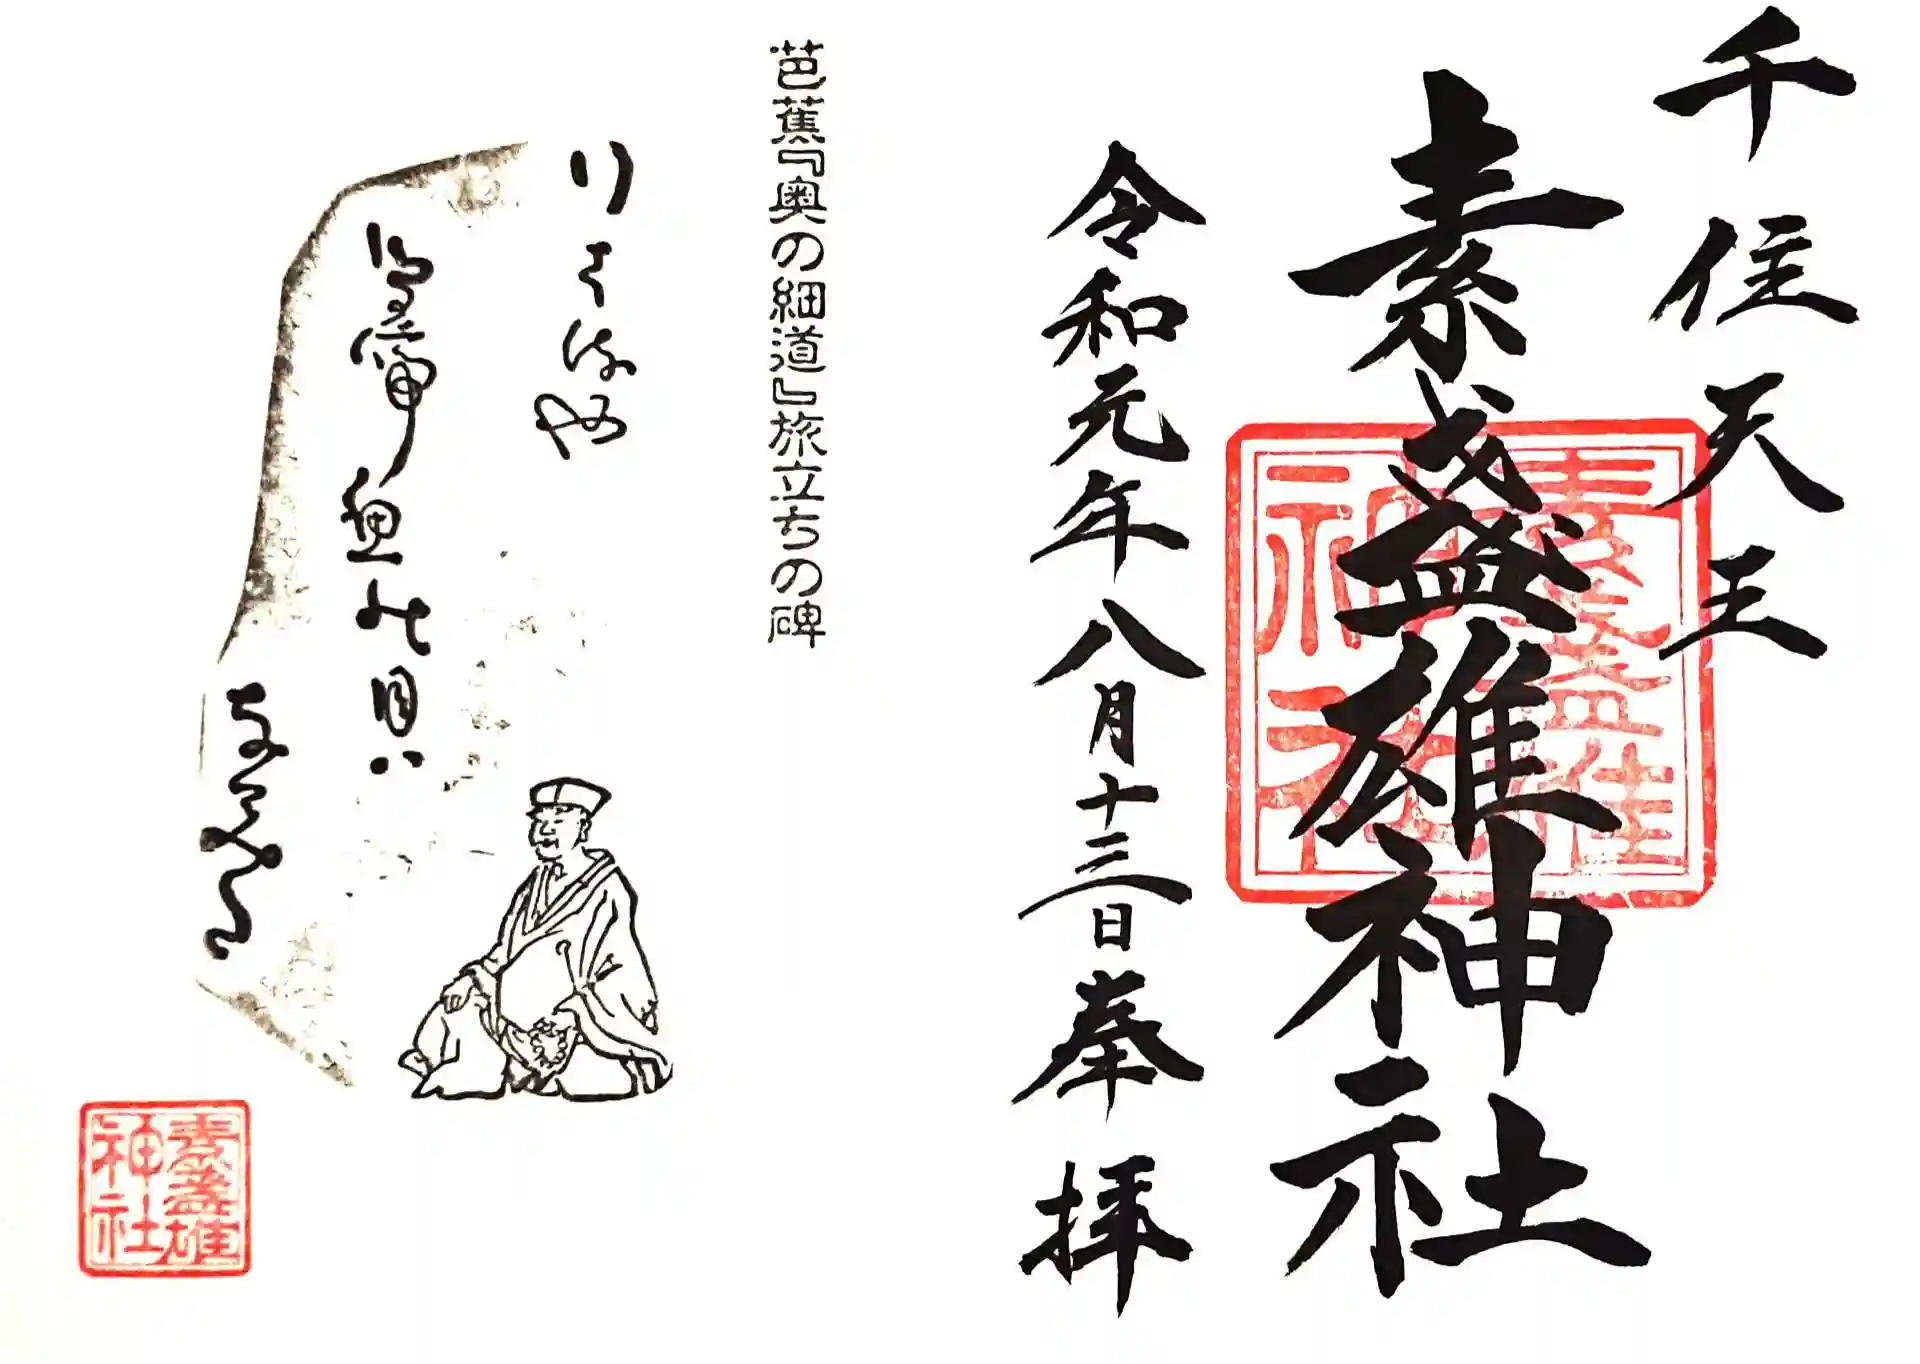 千住天王
素盞雄神社
素盞雄
神社
令和元年八月十三日奉拝
芭蕉『奥の細道』旅立ちの碑
行はるや
鳥啼魚の目ハ
なみだ
素盞雄
神社